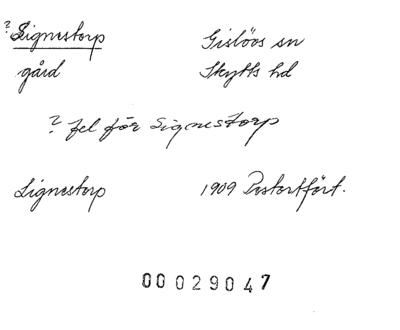 ? Lignestorp Gislövs sn
gård Skytts hd
? fel för Signestorp
Lignestorp 1909 Postortfört.
00029047